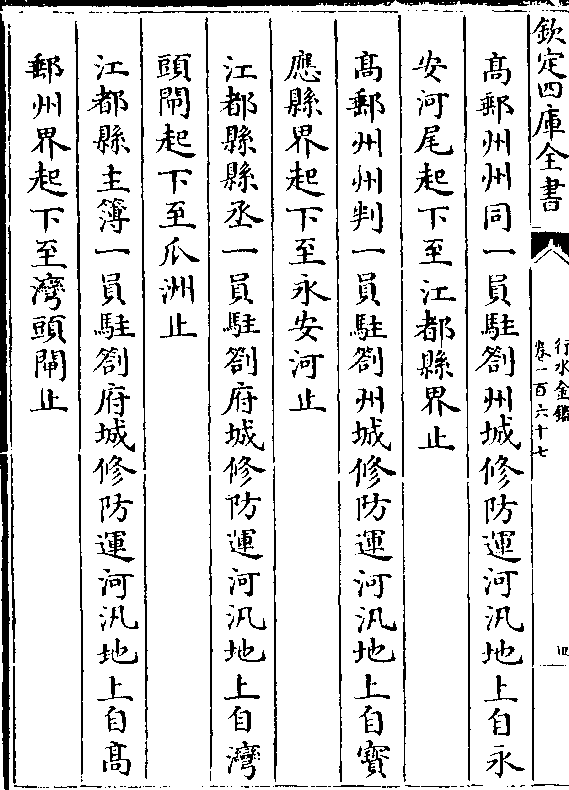 欽定四庫全書
行水金鑑
卷一百六十七
四
高郵州州同一員駐劄州城修防運河汛地上自永
安河尾起下至江都縣界止
高郵州州判一員駐劄州城修防運河汛地上自寳
應縣界起下至永安河止
江都縣縣丞一員駐劄府城修防運河汛地上自灣
頭閘起下至瓜洲止
江都縣主簿一員駐劄府城修防運河汛地上自高
郵州界起下至灣頭閘止